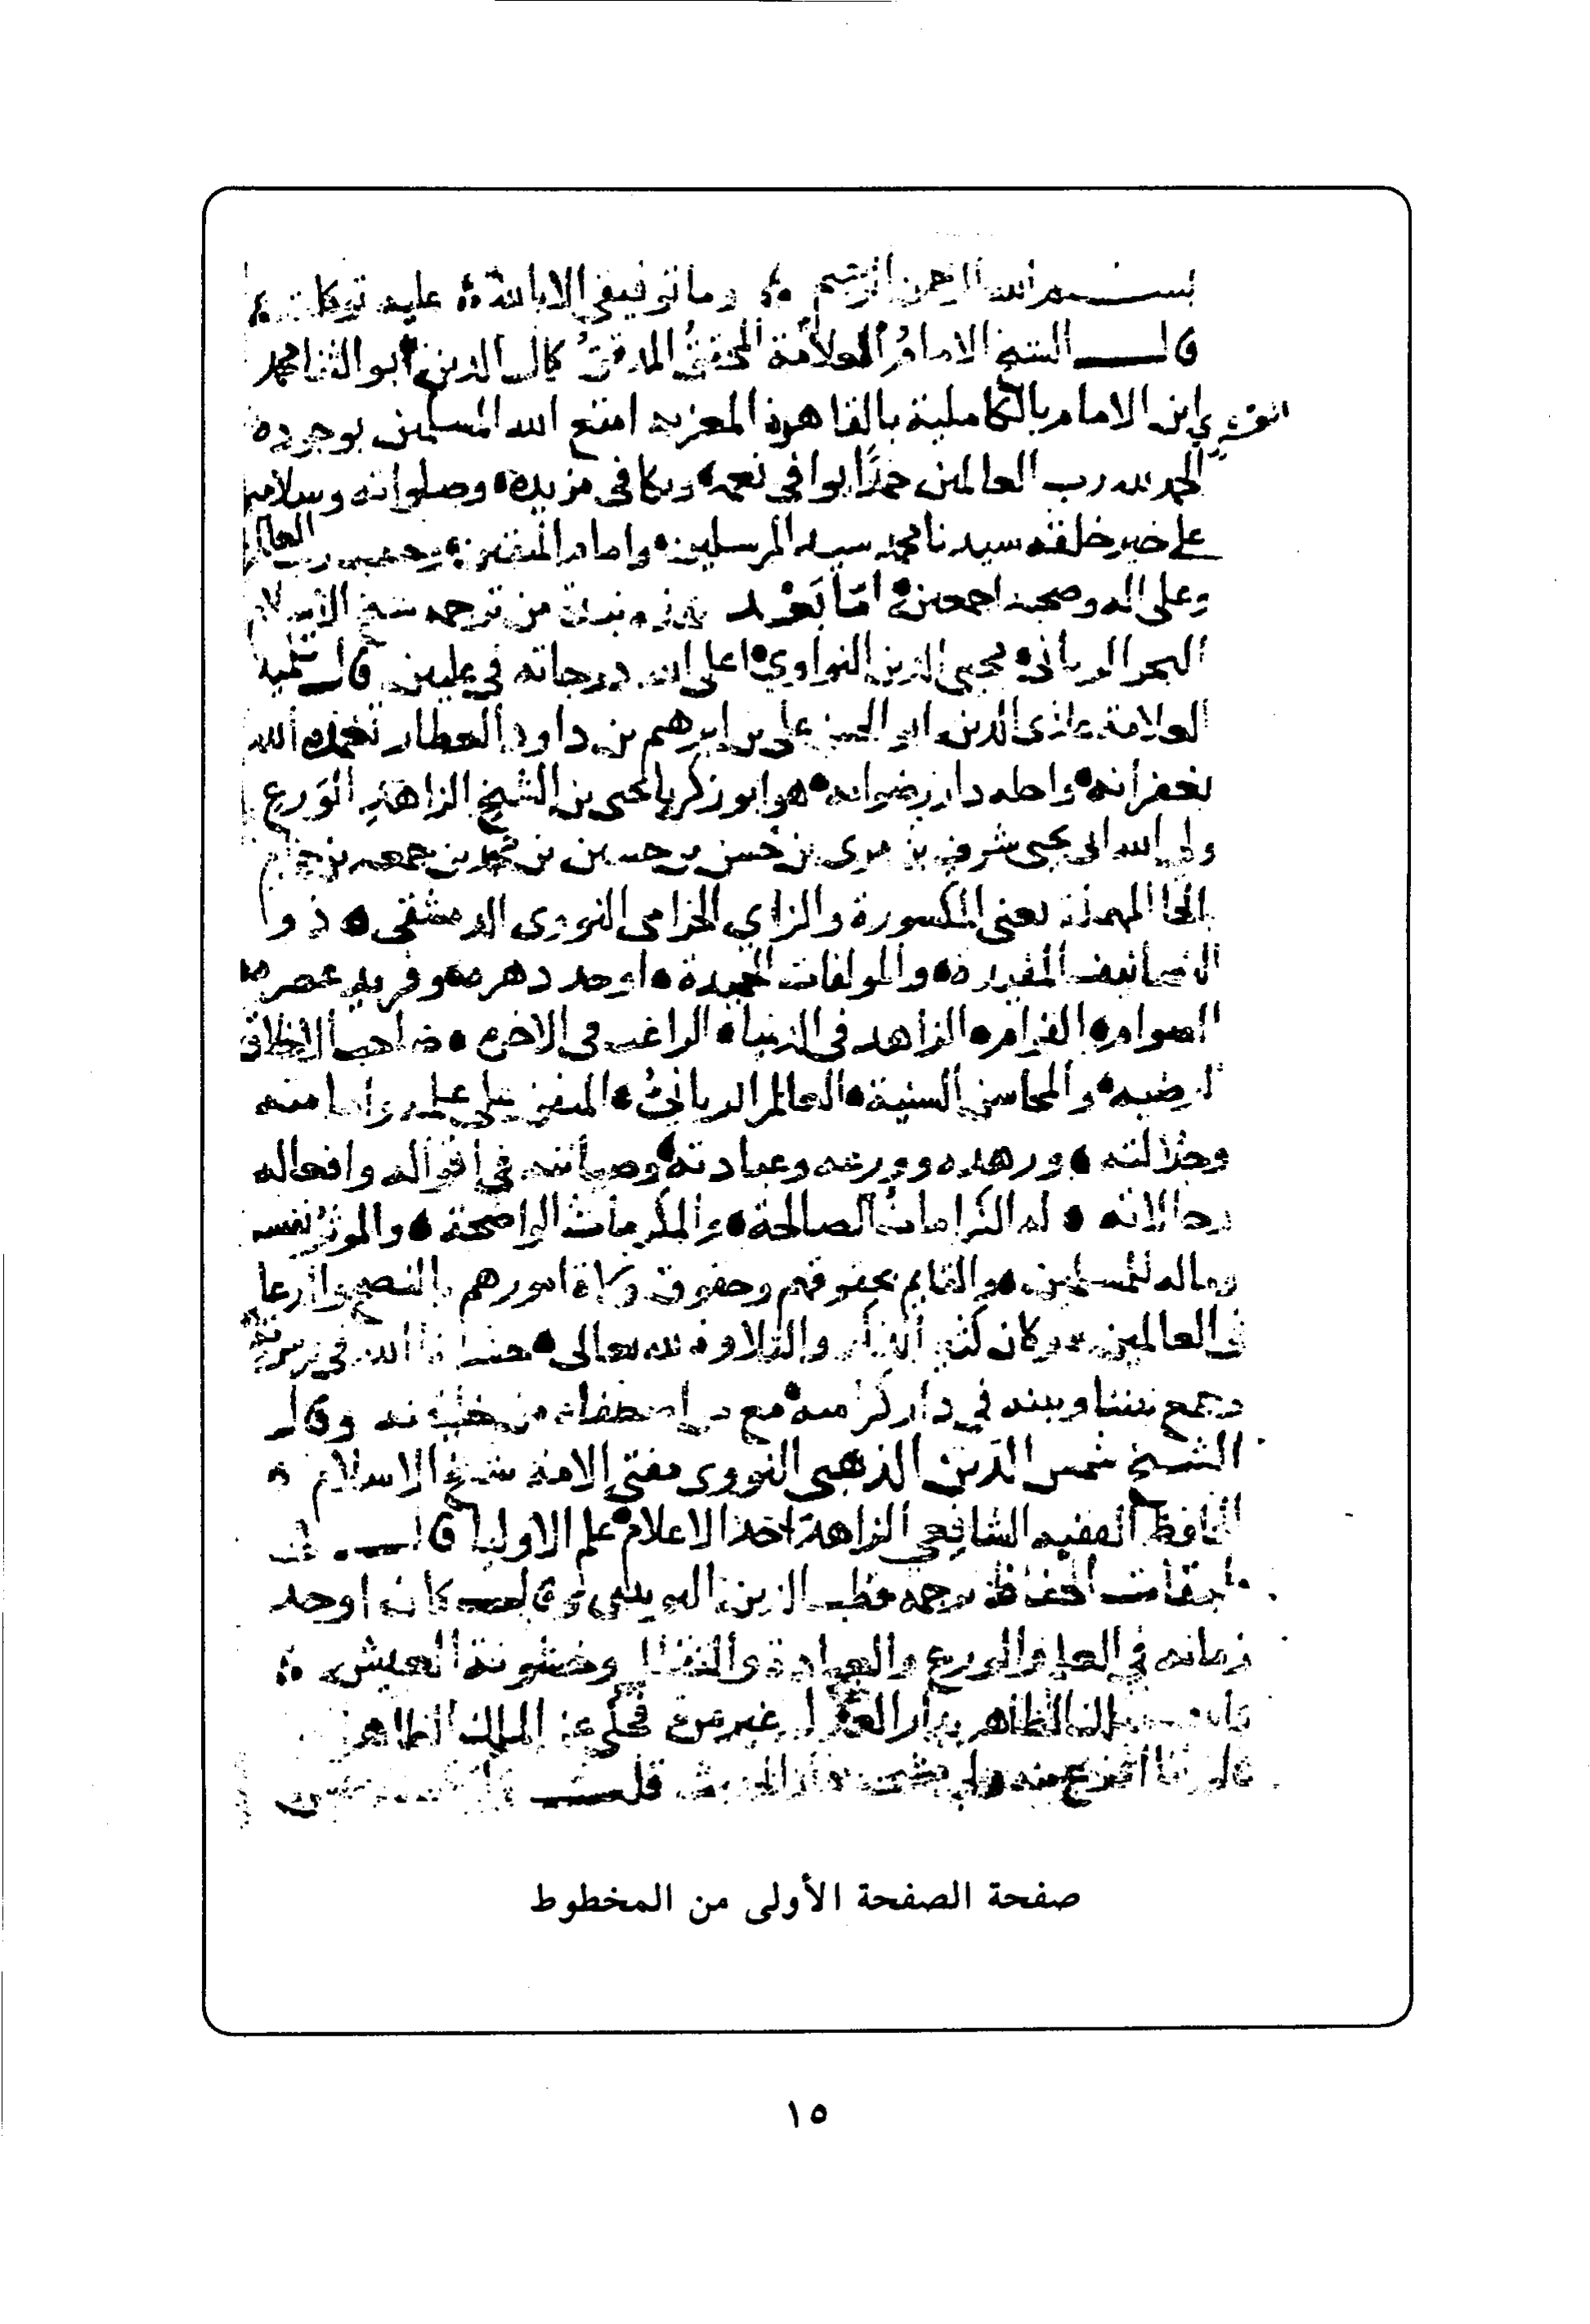 بسم الله الرحمن الرحيم وما توفيقي الا بالله عليه توكلت
قال الشيخ الامام العلامة المحقق المدقق كمال الدين ابو الثنا محمد
ابن الامام بالكاملية بالقاهرة المعزيه امتع الله المسلمين بوجوده
الحمد لله رب العالمين حمدًا يوافي نعمه ويكافي مزيده وصلواته وسلامه
على خير خلقه سيدنا محمد سيد المرسلين وامام المتقين وحبيب رب العالمين
وعلى اله وصحبه اجمعين امّا بَعْد فهذه نبذة من ترجمه شيخ الاسلام
الحبر الرباني محيي الدين النواوي اعلى الله درجاته في عليين قال تلميذه
العلامة علاى الدين ابو الحسن علي بن ابرهيم بن داود العطار تغمده الله
بغفرانه واحله دار رضوانه هو ابو زكريا يحيى بن الشيخ الزاهد الوَرع
ولي الله ابي يحيى شرف بن مرى بن حسن بن حسين بن محمد بن جمعه بن حزام
بالحا المهملة يعنى المكسورة والزاي الحزامى النووى الدمشقى ذو
التصانيف المفيدة والمولفات الحميدة اوحد دهره وفريد عصره
الصوام القوام الزاهد في الدنيا الراغب في الاخرة صاحب الاخلاق
الرضيه والمحاسن السنية العالم الرباني المتفق على علمه وامامته
وجلالته وزهده وورعه وعبادته وصيانته في اقواله وافعاله
وحالاته له الكرامات الصالحة والمكرمات الواضحة والموثر بنفسه
وماله للمسلمين والقايم بحقوقهم وحقوق ولاة امورهم بالنصح والدعا
في العالمين وكان كثير الذكر والتلاوة لله تعالى حشرنا الله في زمرته
وجمع بيننا وبينه في دار كرامته مع من اصطفاه من خليقته وقال
الشيخ شمس الدين الذهبى النووى مفتى الامة شيخ الاسلام
الحافظ الفقيه الشافعي الزاهد احد الاعلام علم الاوليا قال في
طبقات الحفاظ ترجمه قطب الدين اليونينى وقال كان اوحد
زمانه في العلم والورع والعبادة والتقلل وخشونة العيش
الملك الظاهر بدار العدل غير مرة فحكى عن الملك الظاهر
قال انا افزع منه ولي مشيخة دار الحديث قلت
صفحة الصفحة الأولى من المخطوط
١٥